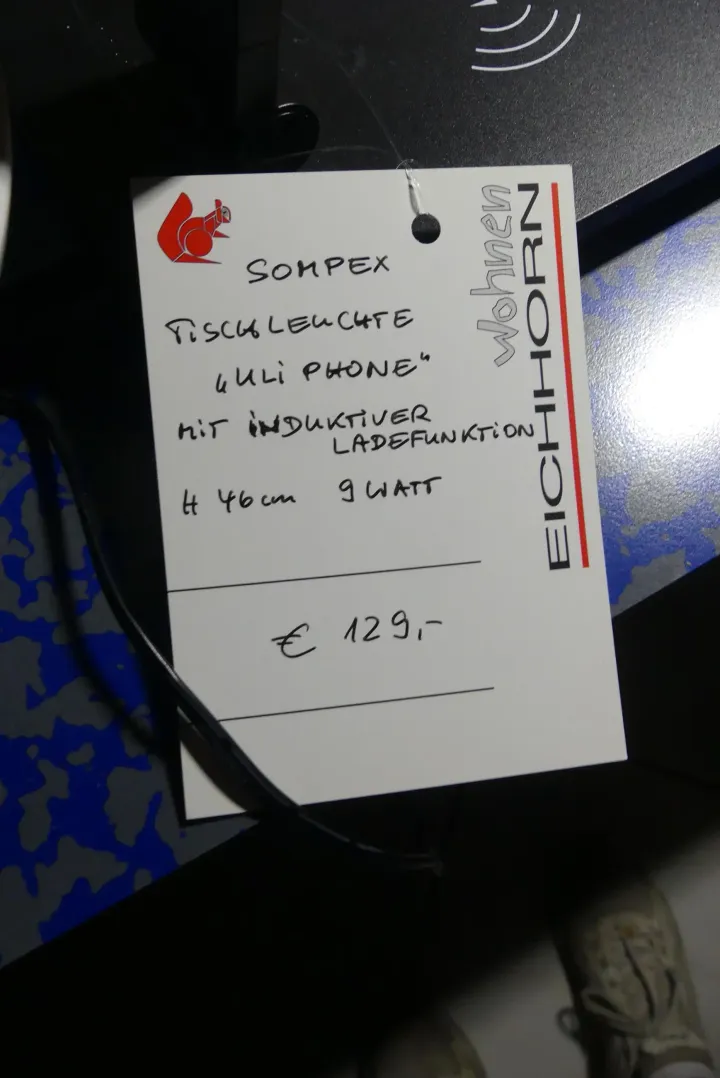 SOMPEX
TISCHLEUCHTE
„ULI PHONE“
MIT INDUKTIVER
LADEFUNKTION
H 46cm 9 WATT
€ 129,-
Wohnen
EICHHORN